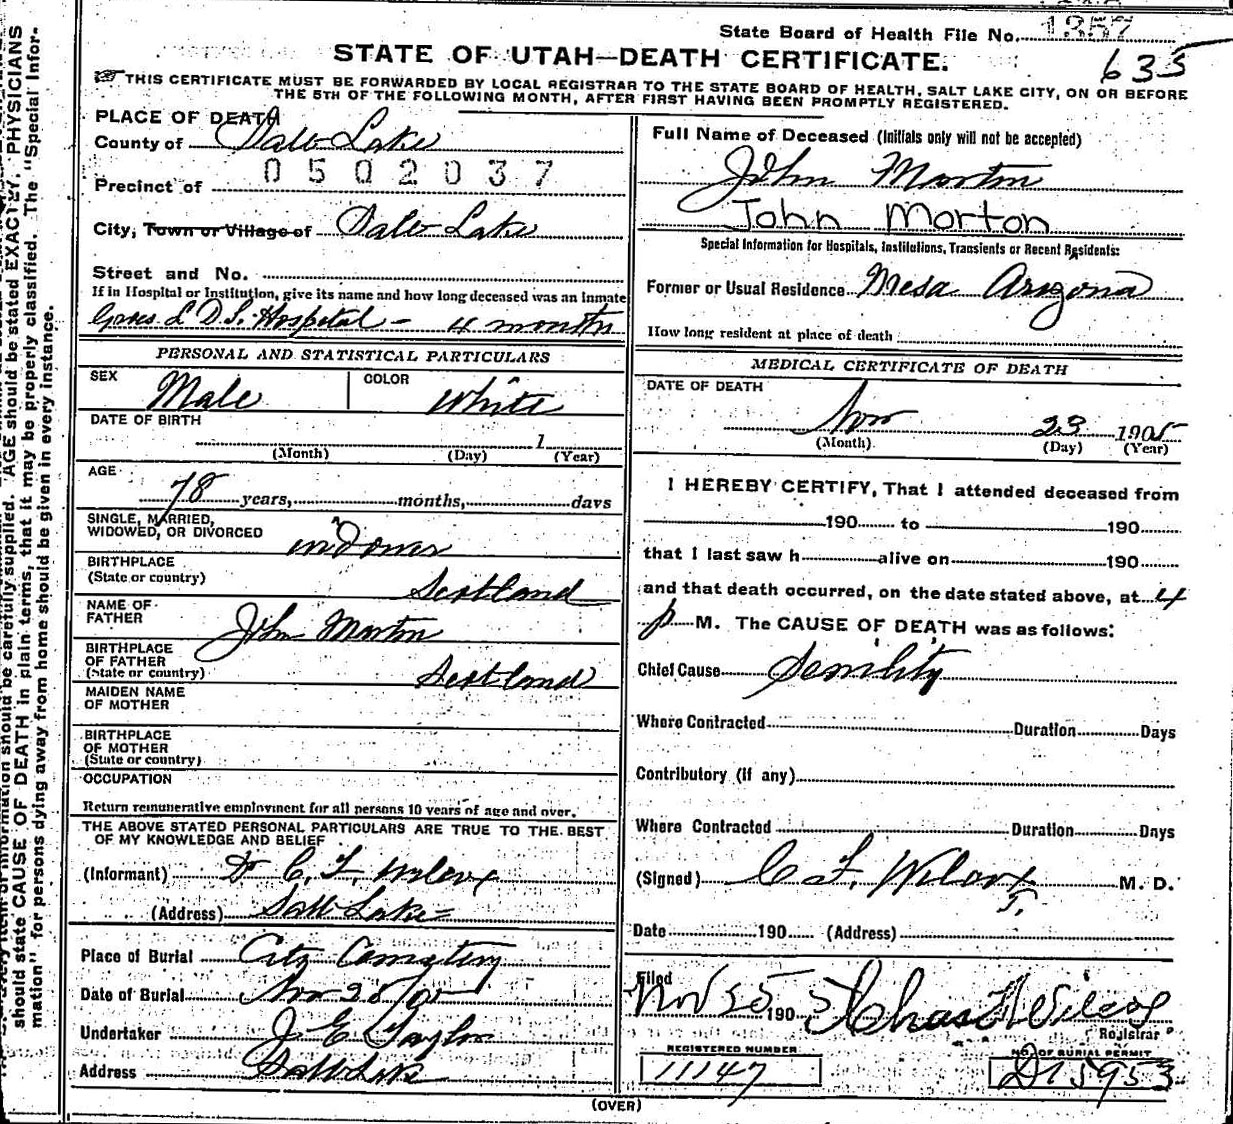 State Board of Health File No. 1357
635
STATE OF UTAH—DEATH CERTIFICATE.
☞ THIS CERTIFICATE MUST BE FORWARDED BY LOCAL REGISTRAR TO THE STATE BOARD OF HEALTH, SALT LAKE CITY, ON OR BEFORE
THE 5TH OF THE FOLLOWING MONTH, AFTER FIRST HAVING BEEN PROMPTLY REGISTERED.
PLACE OF DEATH
County of Salt Lake
0502037
Precinct of
City, Town or Village of Salt Lake
Street and No.
If in Hospital or Institution, give its name and how long deceased was an Inmate
L D S. Hospital - 4 months
PERSONAL AND STATISTICAL PARTICULARS
SEX Male COLOR White
DATE OF BIRTH
1
(Month) (Day) (Year)
AGE
78 years, months, days
SINGLE, MARRIED,
WIDOWED, OR DIVORCED widower
BIRTHPLACE
(State or country) Scotland
NAME OF
FATHER John Morton
BIRTHPLACE
OF FATHER
(State or country) Scotland
MAIDEN NAME
OF MOTHER
BIRTHPLACE
OF MOTHER
(State or country)
OCCUPATION
Return remunerative employment for all persons 10 years of age and over.
THE ABOVE STATED PERSONAL PARTICULARS ARE TRUE TO THE BEST
OF MY KNOWLEDGE AND BELIEF
(Informant) Dr C. F. Wilcox
(Address) Salt Lake
Place of Burial City Cemetery
Date of Burial Nov 25/05
Undertaker J E Taylor
Address Salt Lake
Full Name of Deceased (Initials only will not be accepted)
John Morton
John Morton
Special Information for Hospitals, Institutions, Transients or Recent Residents:
Former or Usual Residence Mesa Arizona
How long resident at place of death
MEDICAL CERTIFICATE OF DEATH
DATE OF DEATH
Nov 23 1905
(Month) (Day) (Year)
I HEREBY CERTIFY, That I attended deceased from
190 to 190
that I last saw h alive on 190
and that death occurred, on the date stated above, at 4
p M. The CAUSE OF DEATH was as follows:
Chief Cause Senility
Where Contracted Duration Days
Contributory (if any)
Where Contracted Duration Days
(Signed) C F. Wilcox M. D.
Date 190 (Address)
Filed
Nov 25 190 5 Chas F Wilcox
Registrar
REGISTERED NUMBER NO. OF BURIAL PERMIT
11147 D15953
(OVER)
should be carefully supplied. AGE should be stated EXACTLY. PHYSICIANS
should state CAUSE OF DEATH in plain terms, that it may be properly classified. The "Special Infor-
mation" for persons dying away from home should be given in every instance.